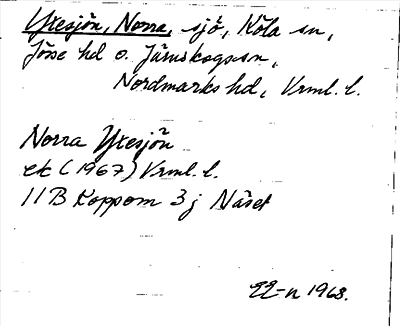 Yxesjön, Norra, sjö, Köla sn,
Jösse hd o. Järnskogs sn,
Nordmarks hd, Vrml. l.
Norra Yxesjön
ek (1967) Vrml. l.
11B Koppom 3j Näset
1968.